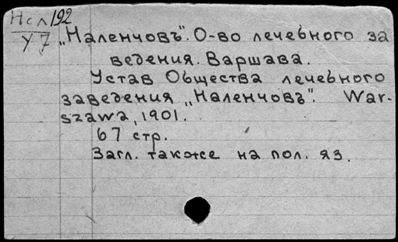 Нсл 192
У7
„Наленчовъ". О-во лечебного за
ведения. Варшава.
Устав Общества лечебного
заведения „Наленчовъ". War-
szawa, 1901.
67 стр.
Загл. также на пол. яз.